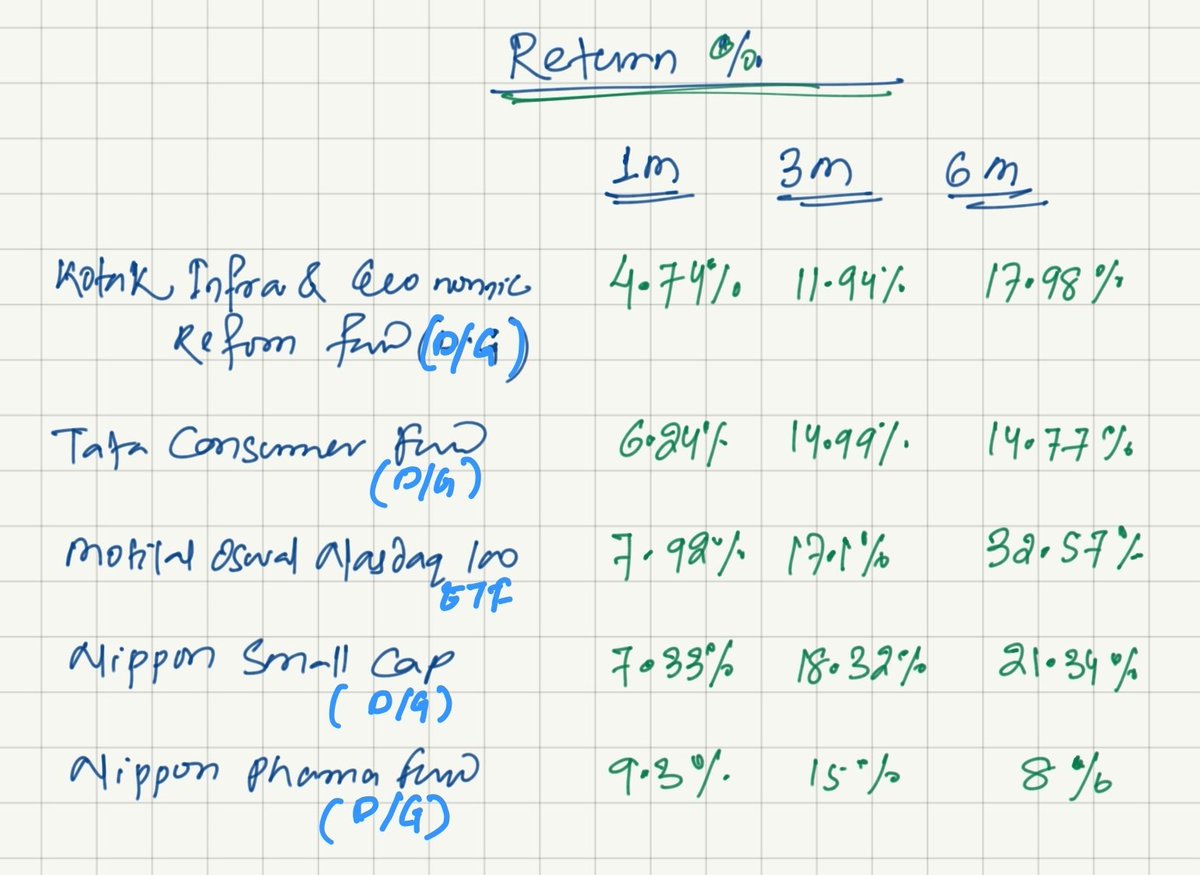 Return %
1m 3m 6m
Kotak Infra & Economic 4.74% 11.94% 17.98%
Reform fund (D/G)
Tata Consumer fund 6.24% 14.99% 14.77%
(D/G)
Motilal Oswal Nasdaq 100 7.92% 17.1% 32.57%
ETF
Nippon Small Cap 7.33% 18.32% 21.34%
(D/G)
Nippon Phama fund 9.3% 15% 8%
(D/G)